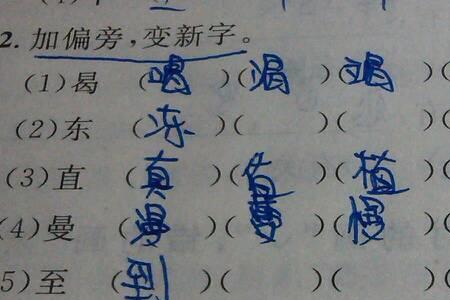 2. 加偏旁，变新字。
(1)曷 (喝)(渴)( )(
(2)东 (冻)( )( )(
(3)直 (真)(值)(植)(
(4)曼 (漫)( )(慢)(
5)至 (到)( )( )(